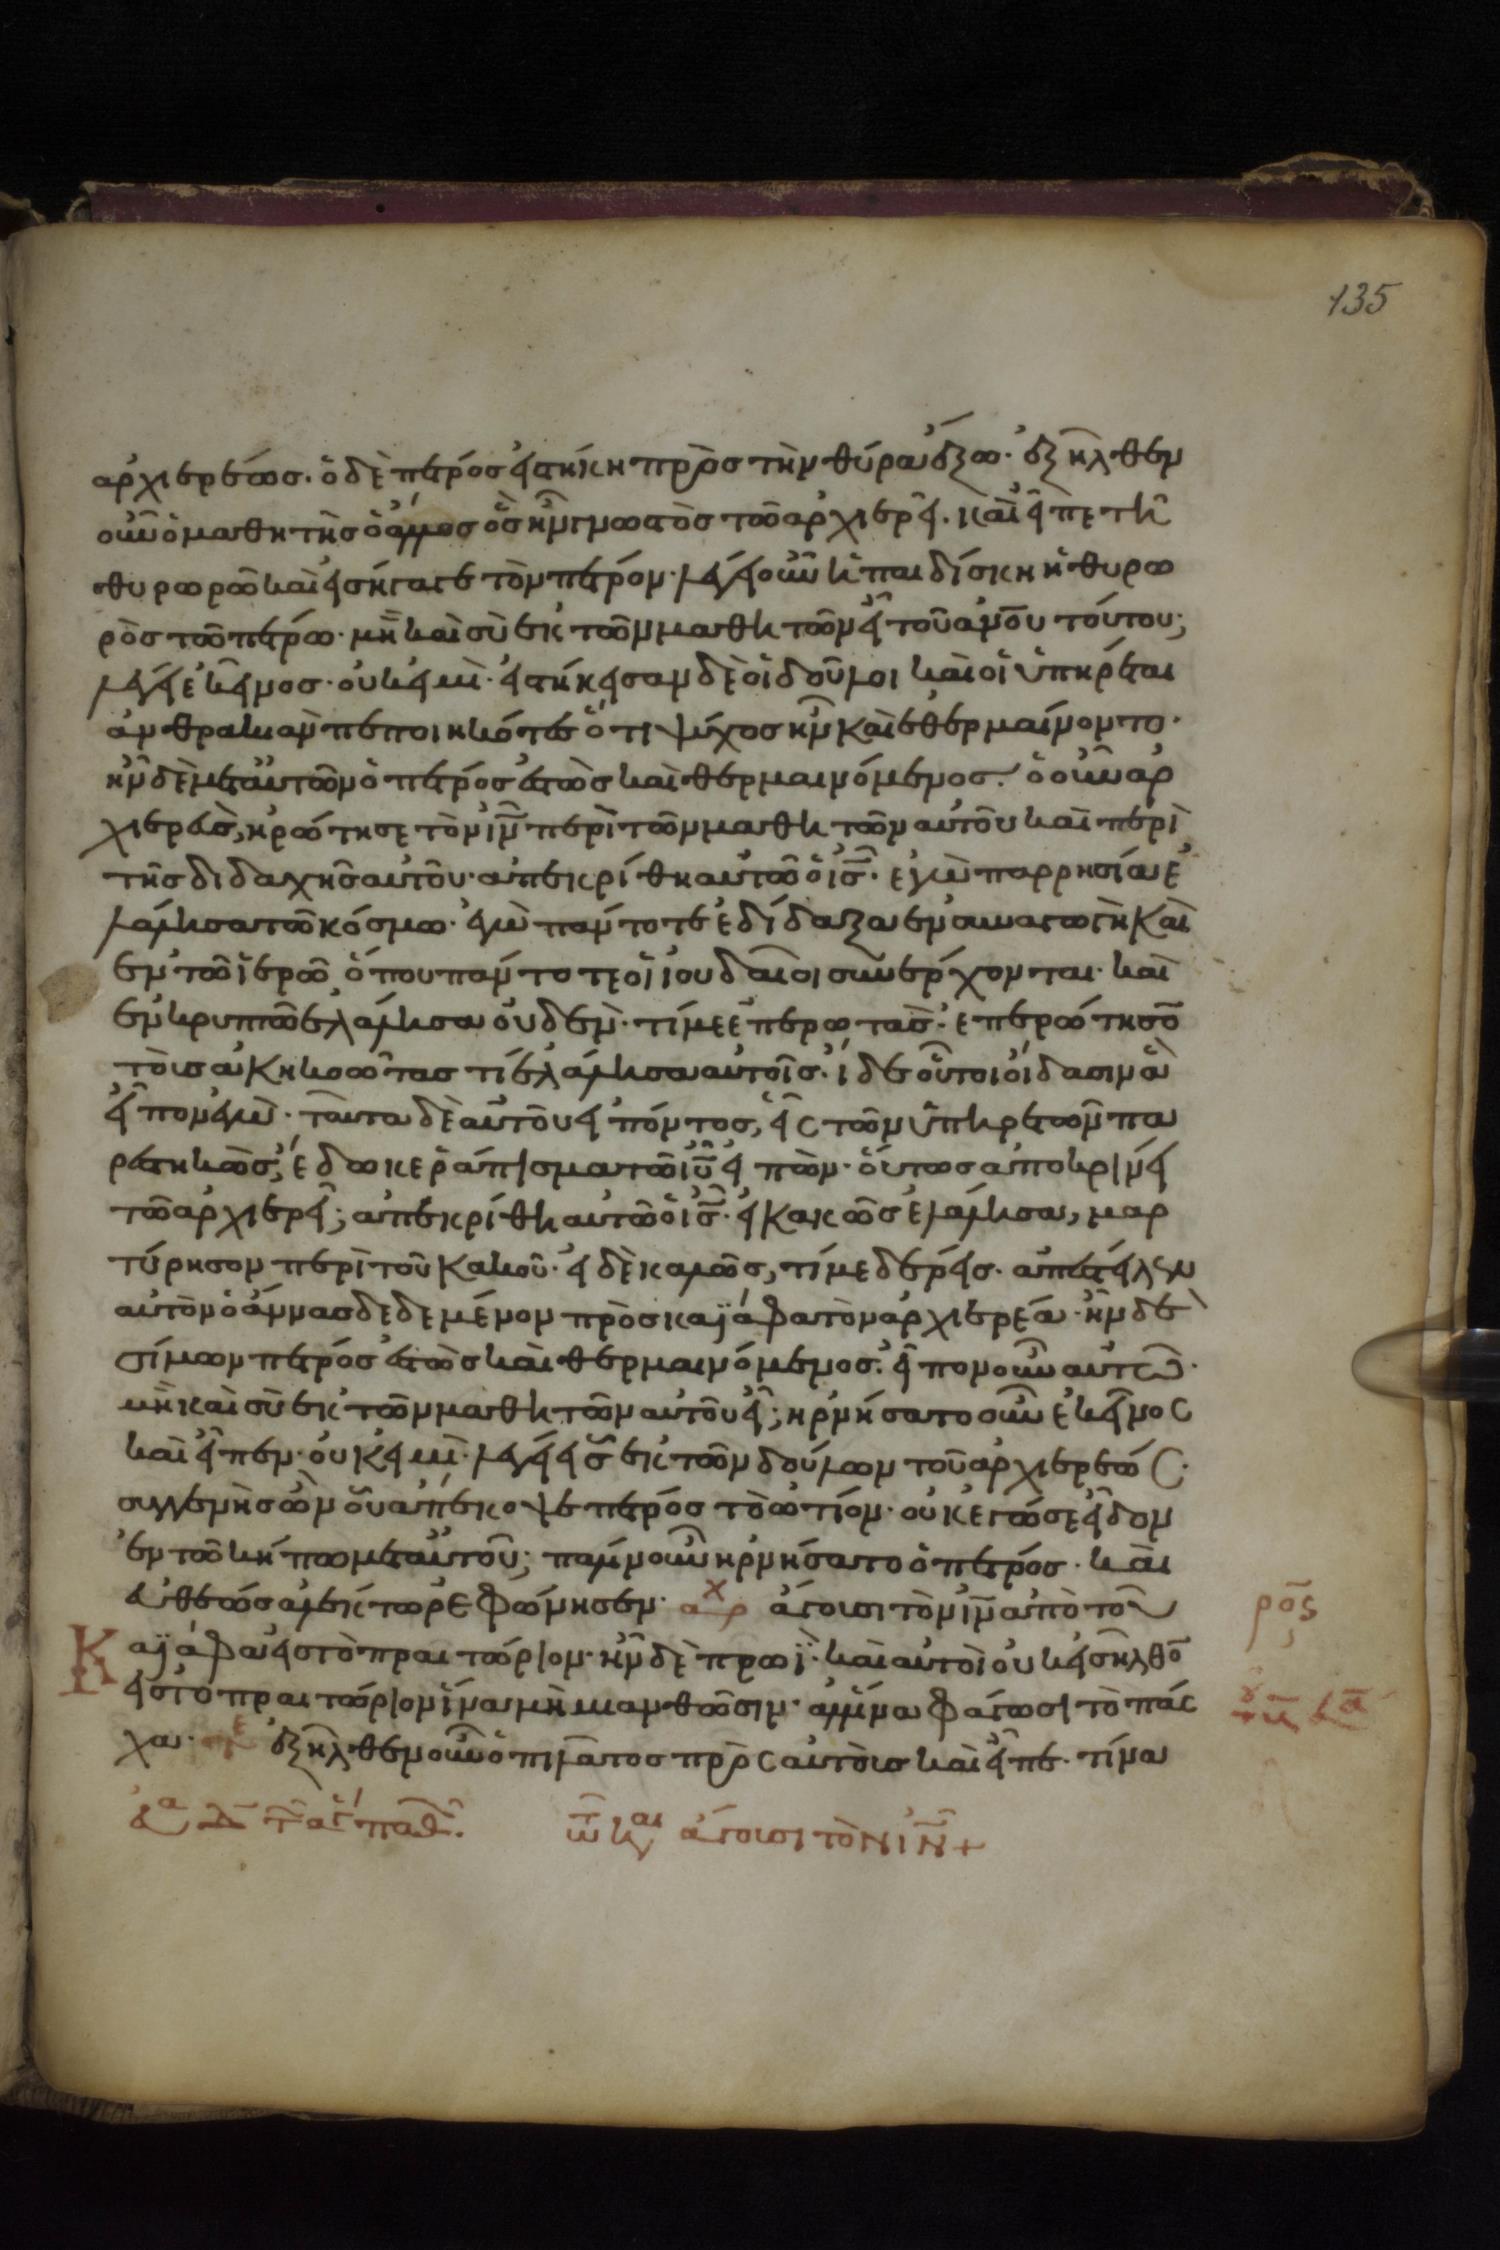 135
αρχιερέως· ὁ δὲ πέτρος εἱστήκη πρὸς τὴν θύραν ἔξω· ἐξῆλθεν
οὖν ὁ μαθητὴς ὁ ἄλλος ὃς ἦν γνωστὸς τῶ ἀρχιερεῖ· καὶ εἶπε τῆ
θυρωρῶ καὶ εἰσήγαγε τὸν πέτρον· λέγει οὖν ἡ παιδίσκη ἡ θυρω
ρὸς τῶ πέτρω· μὴ καὶ σὺ ἐκ τῶν μαθητῶν εἶ τοῦ ἀνου τούτου;
λέγει ἐκεῖνος· οὐκ εἰμὶ· εἱστήκεισαν δὲ οἱ δοῦλοι καὶ οἱ ὑπηρέται
ἀνθρακιὰν πεποιηκότες ὅτι ψύχος ἦν καὶ ἐθερμαίνοντο·
ἦν δὲ μετ αὐτῶν ὁ πέτρος ἑστὼς καὶ θερμαινόμενος· ὁ οὖν ἀρ
χιερεὺς, ἠρώτησε τὸν ιν περὶ τῶν μαθητῶν αὐτοῦ καὶ περὶ
τῆς διδαχῆς αὐτοῦ· ἀπεκρίθη αὐτῶ ὁ ις· ἐγὼ παρρησία ἐ
λάλησα τῶ κόσμω· ἐγὼ πάντοτε ἐδίδαξα ἐν συναγωγῆ καὶ
ἐν τῶ ἱερῶ ὅπου πάντοτε οἱ ἰουδαῖοι συνέρχονται· καὶ
ἐν κρυπτῶ ἐλάλησα οὐδὲν· τί με ἐπερωτᾶς· ἐπερώτησο
τοὺς ἀκηκοότας τί ἐλάλησα αὐτοῖς· ἴδε οὗτοι οἴδασιν ἃ
εἶπον ἐγὼ· ταῦτα δὲ αὐτοῦ εἰπόντος, εἷς τῶν ὑπηρετῶν πα
ρεστηκὼς, ἔδωκε ράπισμα τῶ ιυ εἰπὼν· οὕτως ἀποκρίνει
τῶ ἀρχιερεῖ; ἀπεκρίθη αὐτῶ ὁ ις· εἰ κακῶς ἐλάλησα, μαρ
τύρησον περὶ τοῦ κακοῦ· εἰ δὲ καλῶς, τί με δέρεις· ἀπέστειλεν
αὐτὸν ὁ ἄννας δεδεμένον πρὸς καϊάφα τὸν ἀρχιερέα· ἦν δὲ
σίμων πέτρος ἑστὼς καὶ θερμαινόμενος· εἶπον οὖν αὐτῶ·
μὴ καὶ σὺ ἐκ τῶν μαθητῶν αὐτοῦ εἶ; ἠρνήσατο οὖν ἐκεῖνος
καὶ εἶπεν· οὐκ εἰμὶ· λέγει εἷς ἐκ τῶν δούλων τοῦ ἀρχιερέως·
συγγενὴς ὢν οὗ ἀπέκοψε πέτρος τὸ ὠτίον· οὐκ ἐγώ σε εἶδον
ἐν τῶ κήπω μετ αὐτοῦ; πάλιν οὖν ἠρνήσατο ὁ πέτρος· καὶ
εὐθέως ἀλέκτωρ ἐφώνησεν· αρχ ἄγουσι τὸν ιν ἀπὸ τοῦ
Καϊάφα εἰς τὸ πραιτώριον· ἦν δὲ πρωΐ· καὶ αὐτοὶ οὐκ εἰσῆλθο
εἰς τὸ πραιτώριον ἵνα μὴ μιανθῶσιν· ἀλλ ἵνα φάγωσι τὸ πάσ
χα· ἐξῆλθεν οὖν ὁ πιλᾶτος πρὸς αὐτοὺς καὶ εἶπε· τίνα
ἄγουσι τὸν ιν +